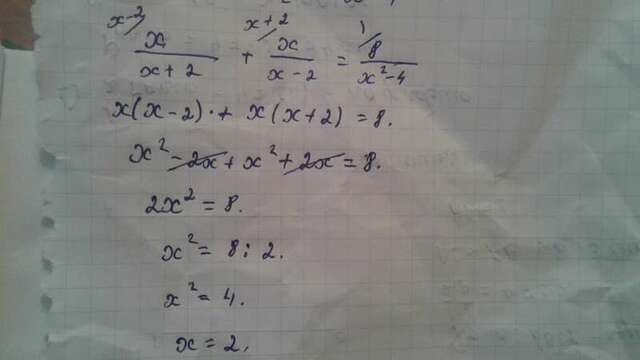 x-2/ x/(x+2) + x+2/ x/(x-2) = 1/ 8/(x²-4)
x(x-2) · + x(x+2) = 8.
x² - 2x + x² + 2x = 8.
2x² = 8.
x² = 8 : 2.
x² = 4.
x = 2.